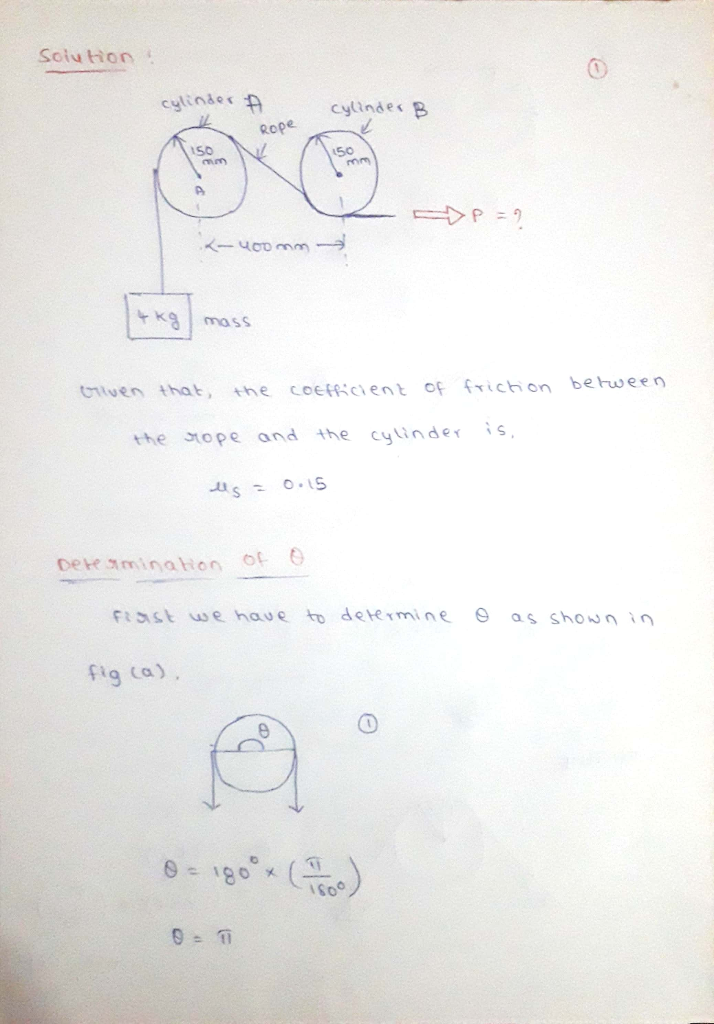 Solution :
①
cylinder A
cylinder B
Rope
150
mm
150
mm
A
P = ?
400 mm
4 kg
mass
Given that, the coefficient of friction between
the rope and the cylinder is,
μs = 0.15
Determination of θ
First we have to determine θ as shown in
fig (a).
θ
①
θ = 180° × (π/180°)
θ = π